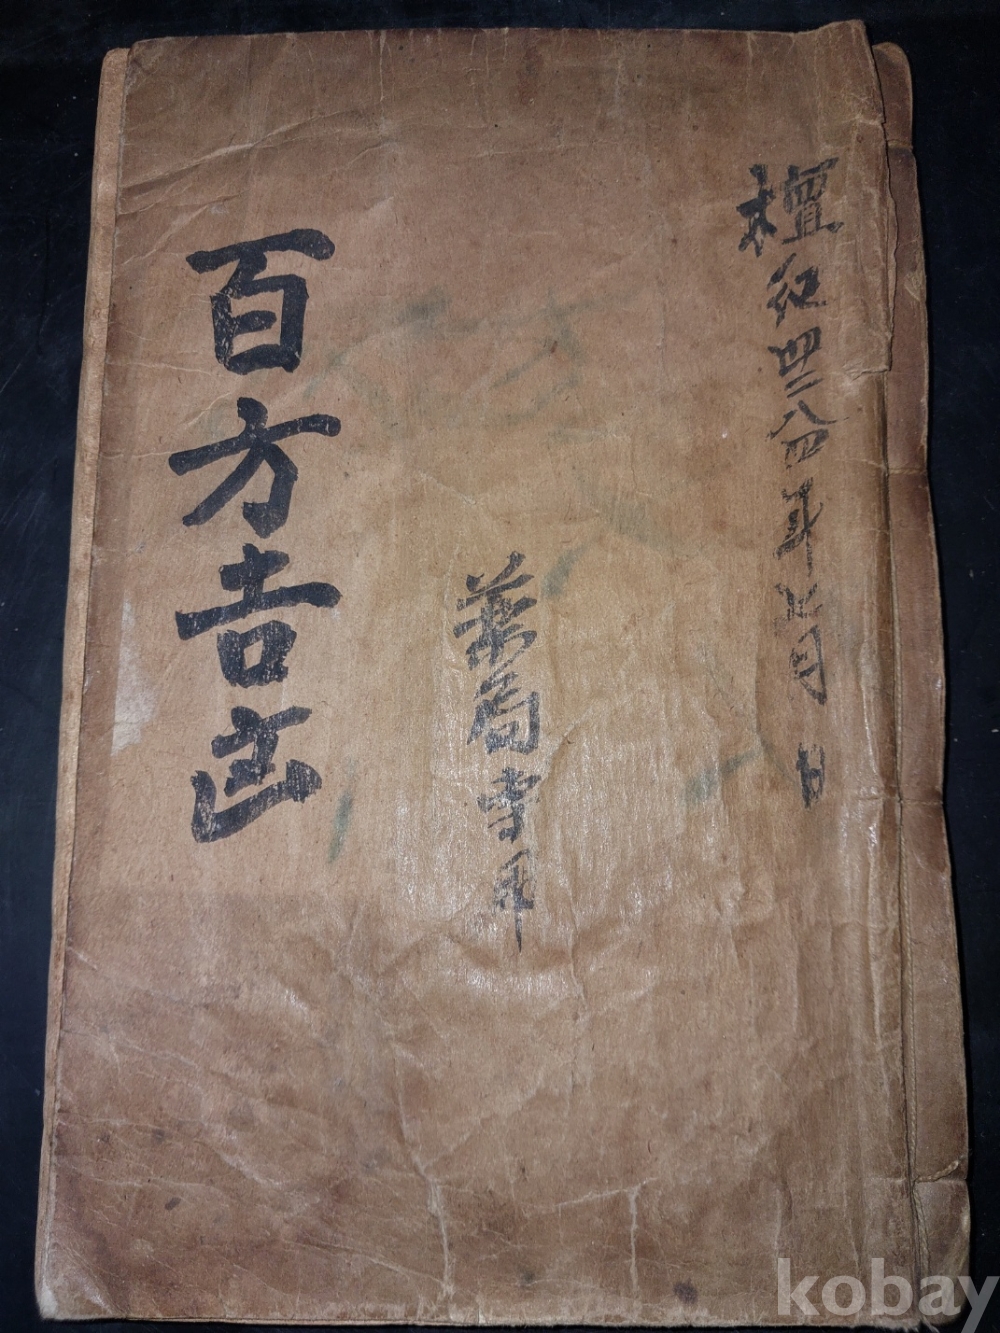 檀紀四二八四年正月 日
藥局專用
百方吉凶
kobay